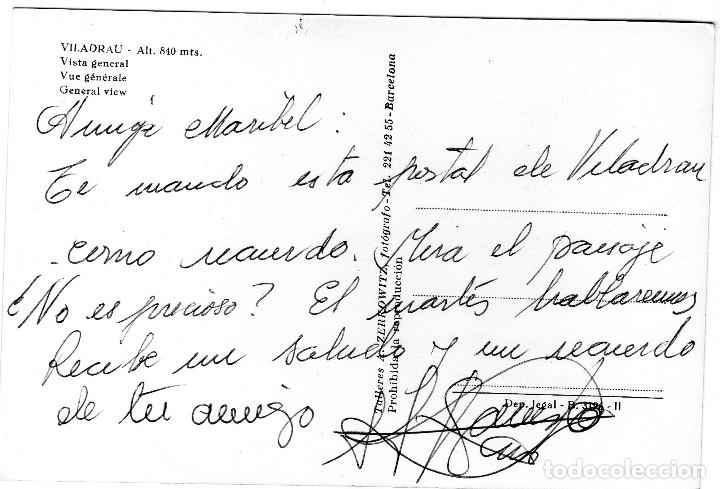 VILADRAU - Alt. 840 mts.
Vista general
Vue générale
General view
Amiga Maribel:
Te mando esta postal de Viladrau
como recuerdo. Mira el paisaje
¿No es precioso? El martes hablaremos
Recibe un saludo y un recuerdo
de tu amigo
Talleres A. ZERKOWITZ, fotógrafo - Tel. 221 42 55 - Barcelona
Prohibida la reproducción
Dep. legal - B. - II
todocoleccion